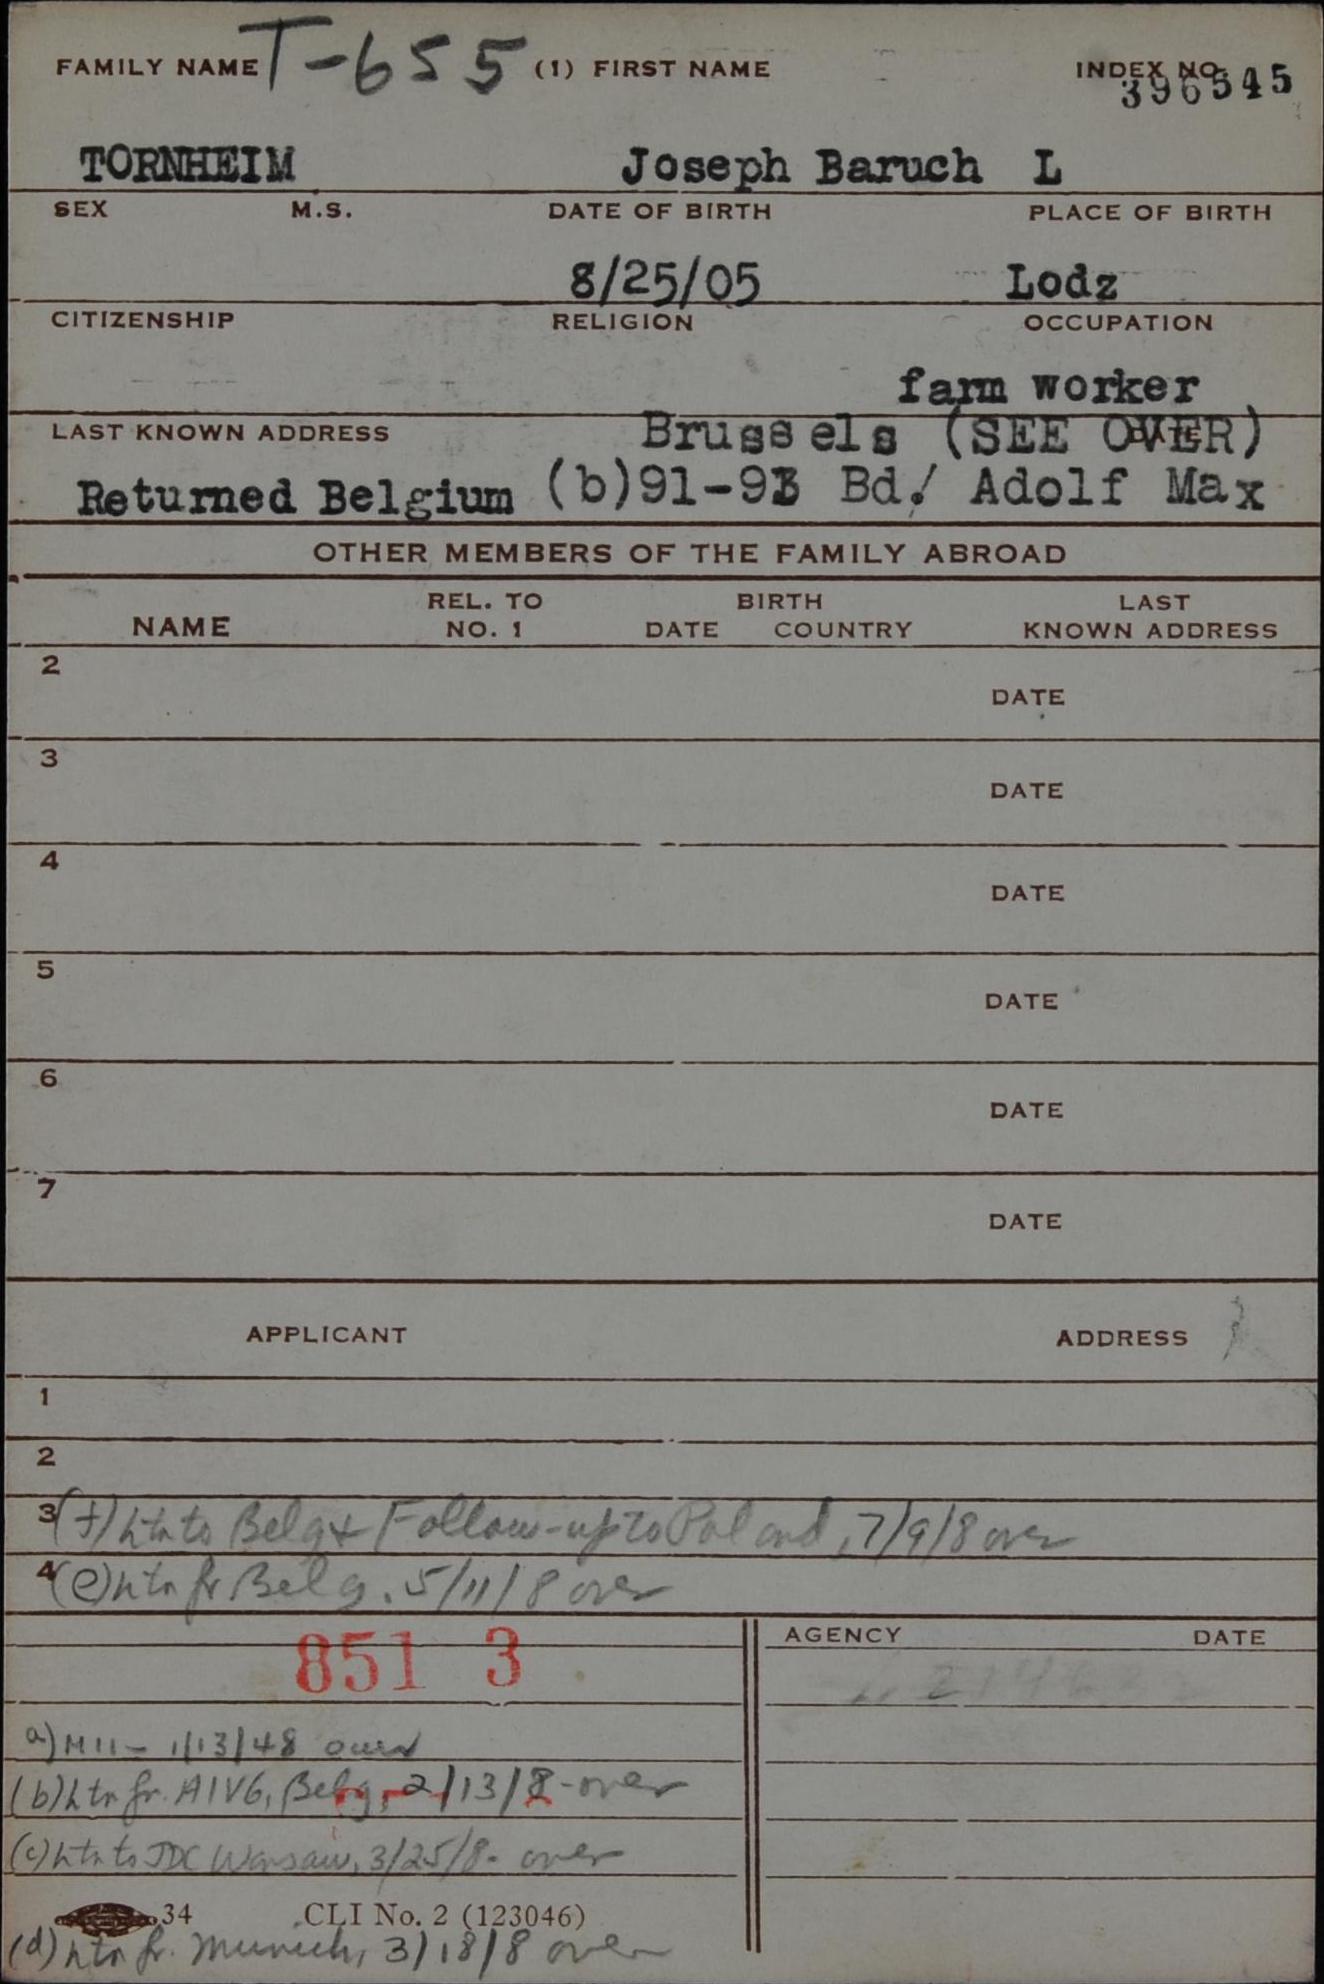 FAMILY NAME T-655 (1) FIRST NAME INDEX NO.
396545
TORNHEIM Joseph Baruch L
SEX M.S. DATE OF BIRTH PLACE OF BIRTH
8/25/05 Lodz
CITIZENSHIP RELIGION OCCUPATION
farm worker
LAST KNOWN ADDRESS Brussels (SEE OVER) DATE
Returned Belgium (b)91-93 Bd. Adolf Max
OTHER MEMBERS OF THE FAMILY ABROAD
NAME REL. TO NO. 1 BIRTH DATE COUNTRY LAST KNOWN ADDRESS
2 DATE
3 DATE
4 DATE
5 DATE
6 DATE
7 DATE
APPLICANT ADDRESS
1
2
3 (f) Ltr to Belg & Follow-up to Poland, 7/9/8 over
4 (e) Ltr fr Belg. 5/11/8 over
851 3
AGENCY DATE
a) M11 - 1/13/48 over
(b) Ltr fr. AIVG, Belg, 2/13/8 - over
(c) Ltr to JDC Warsaw, 3/25/8 - over
34 CLI No. 2 (123046)
(d) Ltr fr. Munich, 3/18/8 over